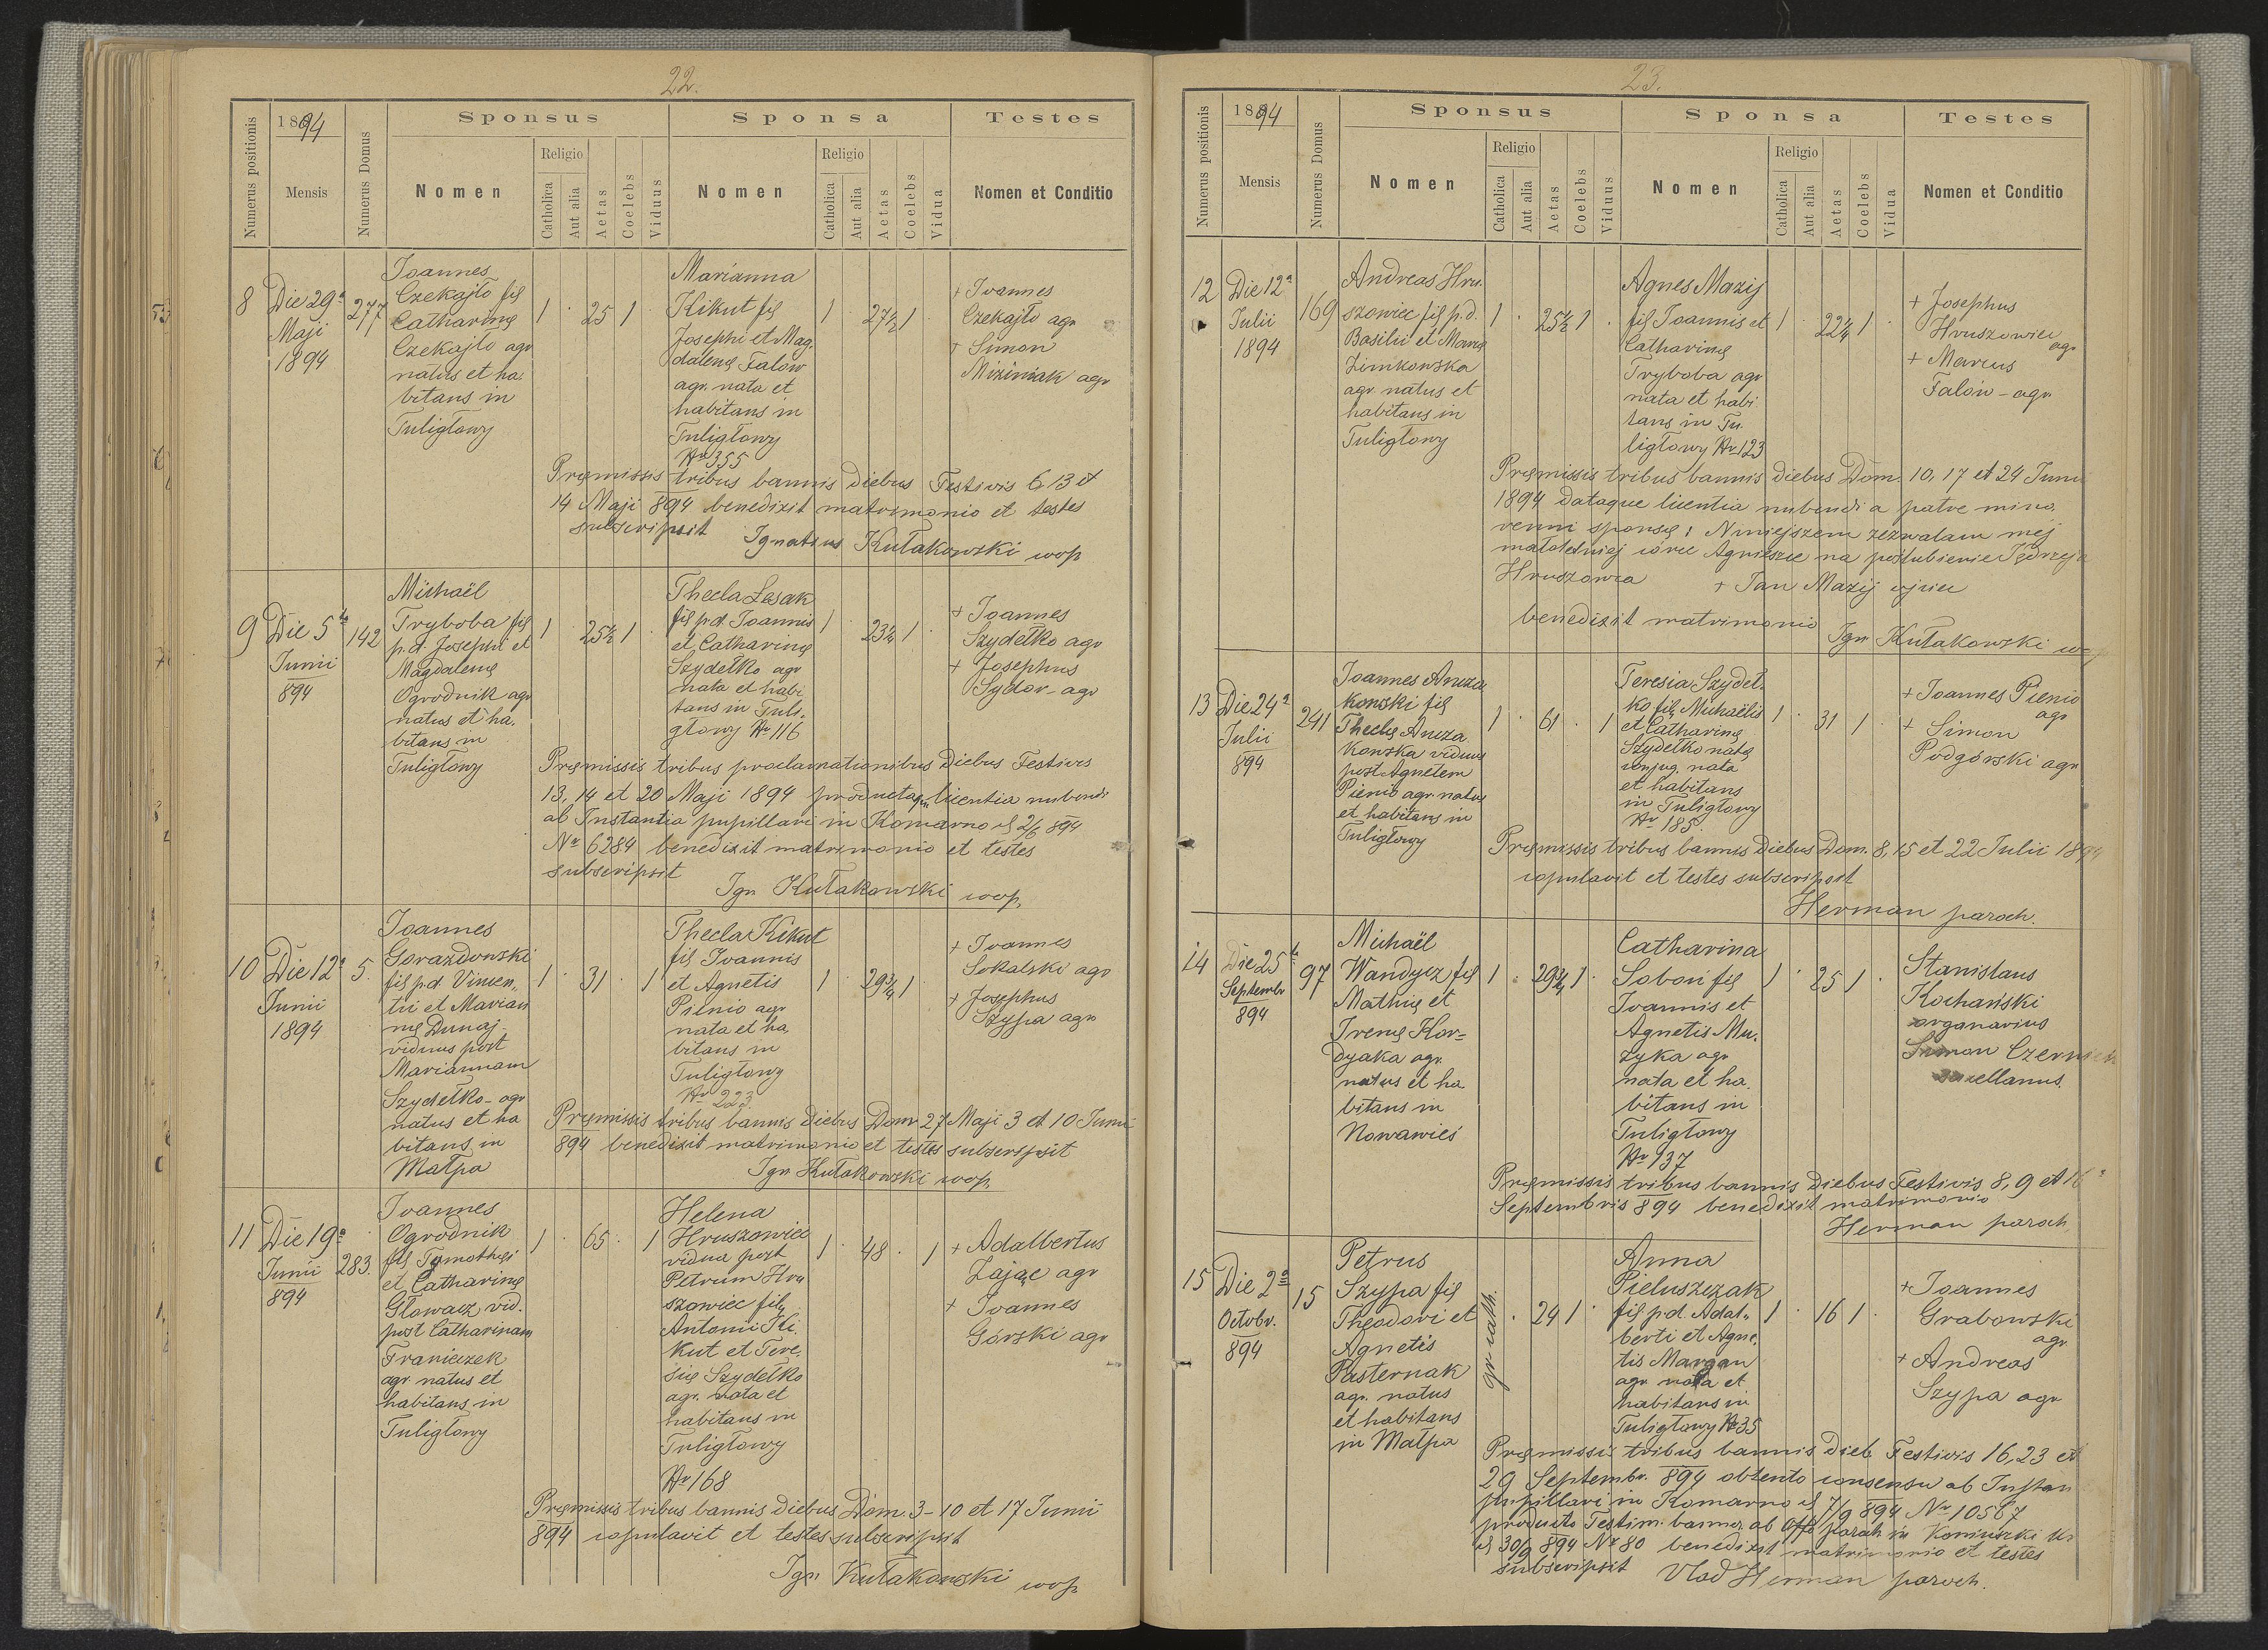 22.
Numerus positionis
1894
Mensis
Numerus Domus
Sponsus
Nomen
Religio
Catholica
Aut alia
Aetas
Coelebs
Viduus
Sponsa
Nomen
Religio
Catholica
Aut alia
Aetas
Coelebs
Vidua
Testes
Nomen et Conditio
8
Die 29a
Maji
1894
277
Joannes
Czekajło fil
Catharinę
Czekajło agr
natus et ha.
bitans in
Tuligłowy
1 · 25 1
Marianna
Kikut fil
Josephi et Mag.
dalenę Falow
agr. nata et
habitans in
Tuligłowy
Nr 355
1 · 27½ 1
+ Joannes
Czekajło agr
+ Simon
Miziniak agr
Pręmissis tribus bannis diebus Festivis 6 13 et
14 Maji 894 benedixit matrimonio et testes
subscripsit
Ignatius Kułakowski wop
9
Die 5ta
Junii
894
142
Michaël
Tryboba fil
p.d. Josephi et
Magdalenę
Ogrodnik agr
natus et ha.
bitans in
Tuligłowy
1 · 25½ 1
Thecla Lesak
fil p.d. Joannis
et Catharinę
Szydełko agr
nata et habi
tans in Tuli.
głowy Nr 116
1 · 23¼ 1
+ Joannes
Szydełko agr
+ Josephus
Sydor - agr
Pręmissis tribus proclamationibus diebus Festivis
13, 14 et 20 Maji 1894 productaque licentia nubendi
ab Instantia pupillari in Komarno d 2/6 894
Nr 6284 benedixit matrimonio et testes
subscripsit
Ign Kułakowski wop.
10
Die 12a
Junii
1894
5.
Joannes
Gorazdowski
fil p.d. Vincen„
tii et Marian
nę Dunaj -
viduus post
Mariannam
Szydełko - agr
natus et ha
bitans in
Małpa
1 · 31 · 1
Thecla Kikut
fil Joannis
et Agnetis
Pienio agr
nata et ha
bitans in
Tuligłowy
Nr 223
1 · 29¾ 1
+ Joannes
Sokalski agr
+ Josephus
Szypa agr
Pręmissis tribus bannis diebus Dom 27 Maji 3 et 10 Junii
894 benedixit matrimonio et testes subscripsit
Ign Kułakowski wop.
11
Die 19a
Junii
894
283.
Joannes
Ogrodnik
fil Tymothęi
et Catharinę
Głowacz vid.
post Catharinam
Franiczek
agr. natus et
habitans in
Tuligłowy
1 · 65 · 1
Helena
Hruszowiec
vidua post
Petrum Hru
szowiec fil
Antonii Ki.
kut et Tere.
się Szydełko
agr. nata et
habitans in
Tuligłowy
Nr 168
1 · 48 · 1
+ Adalbertus
Zając agr
+ Joannes
Górski agr
Pręmissis tribus bannis diebus Dom. 3 - 10 et 17 Junii
894 copulavit et testes subscripsit
Ign Kułakowski wop
23.
Numerus positionis
1894
Mensis
Numerus Domus
Sponsus
Nomen
Religio
Catholica
Aut alia
Aetas
Coelebs
Viduus
Sponsa
Nomen
Religio
Catholica
Aut alia
Aetas
Coelebs
Vidua
Testes
Nomen et Conditio
12
Die 12a
Julii
1894
169
Andreas Hru.
szowiec fil p.d.
Basilii et Marię
Zimkowska
agr natus et
habitans in
Tuligłowy
1 · 25½ 1 ·
Agnes Mazij
fil Joannis et
Catharinę
Tryboba agr
nata et habi
tans in Tu.
ligłowy Nr 123
1 · 22¼ 1 ·
+ Josephus
Hruszowiec
agr
+ Marcus
Falów - agr
Pręmissis tribus bannis diebus Dom. 10, 17 et 24 Junii
1894 dataque licentia nubendi a patre mino.
renni sponsę: Niniejszem zezwalam mej
małoletniej córce Agnieszce na poślubienie Jędrzeja
Hruszowca + Jan Mazij ojciec
benedixit matrimonio
Ign Kułakowski wop
13
Die 24a
Julii
894
241
Joannes Ancza
kowski fil
Theclę Ancza
kowska viduus
post Agnetem
Pienio agr. natus
et habitans in
Tuligłowy
1 · 61 · 1
Teresia Szydeł.
ko fil Michaëlis
et Catharinę
Szydełko natę
conjug. nata
et habitans
in Tuligłowy
Nr 185.
1 · 31 1 ·
+ Joannes Pienio
agr
+ Simon
Podgórski agr
Pręmissis tribus bannis diebus Dom. 8, 15 et 22 Julii 1894
copulavit et testes subscripsit
Herman paroch.
14
Die 25ta
Septembr
894
97
Michaël
Wandycz fil
Mathię et
Irenę Kor=
dyaka agr.
natus et ha
bitans in
Nowawieś
1 · 29¾ 1 ·
Catharina
Soboń fil
Joannis et
Agnetis Mu.
zyka agr
nata et ha.
bitans in
Tuligłowy
Nr 137
1 · 25 1 ·
Stanislaus
Kochański
organarius
Simon
Pręmissis tribus bannis diebus Festivis 8, 9 et 16
Septembris 894 benedixit matrimonio
Herman paroch.
15
Die 2a
Octobr.
894
15
Petrus
Szypa fil
Theodori et
Agnetis
Pasternak
agr. natus
et habitans
in Małpa
gr cath.
· 24 1 ·
Anna
Pieluszczak
fil p.d. Adal„
berti et Agne.
tis Margan
agr nata et
habitans in
Tuligłowy Nr 35
1 · 16 1 ·
+ Joannes
Grabowski
agr
+ Andreas
Szypa agr
Pręmissis tribus bannis dieb Festivis 16, 23 et
29 Septembr. 894 obtento consensu ab Instan
pupillari in Komarno d 7/9 894 Nr 10587
producto Testim. bannor. ab Offo paroch in Koniuszki
d 30/9 894 Nr 80 benedixit matrimonio et testes
subscripsit Vlad Herman paroch.